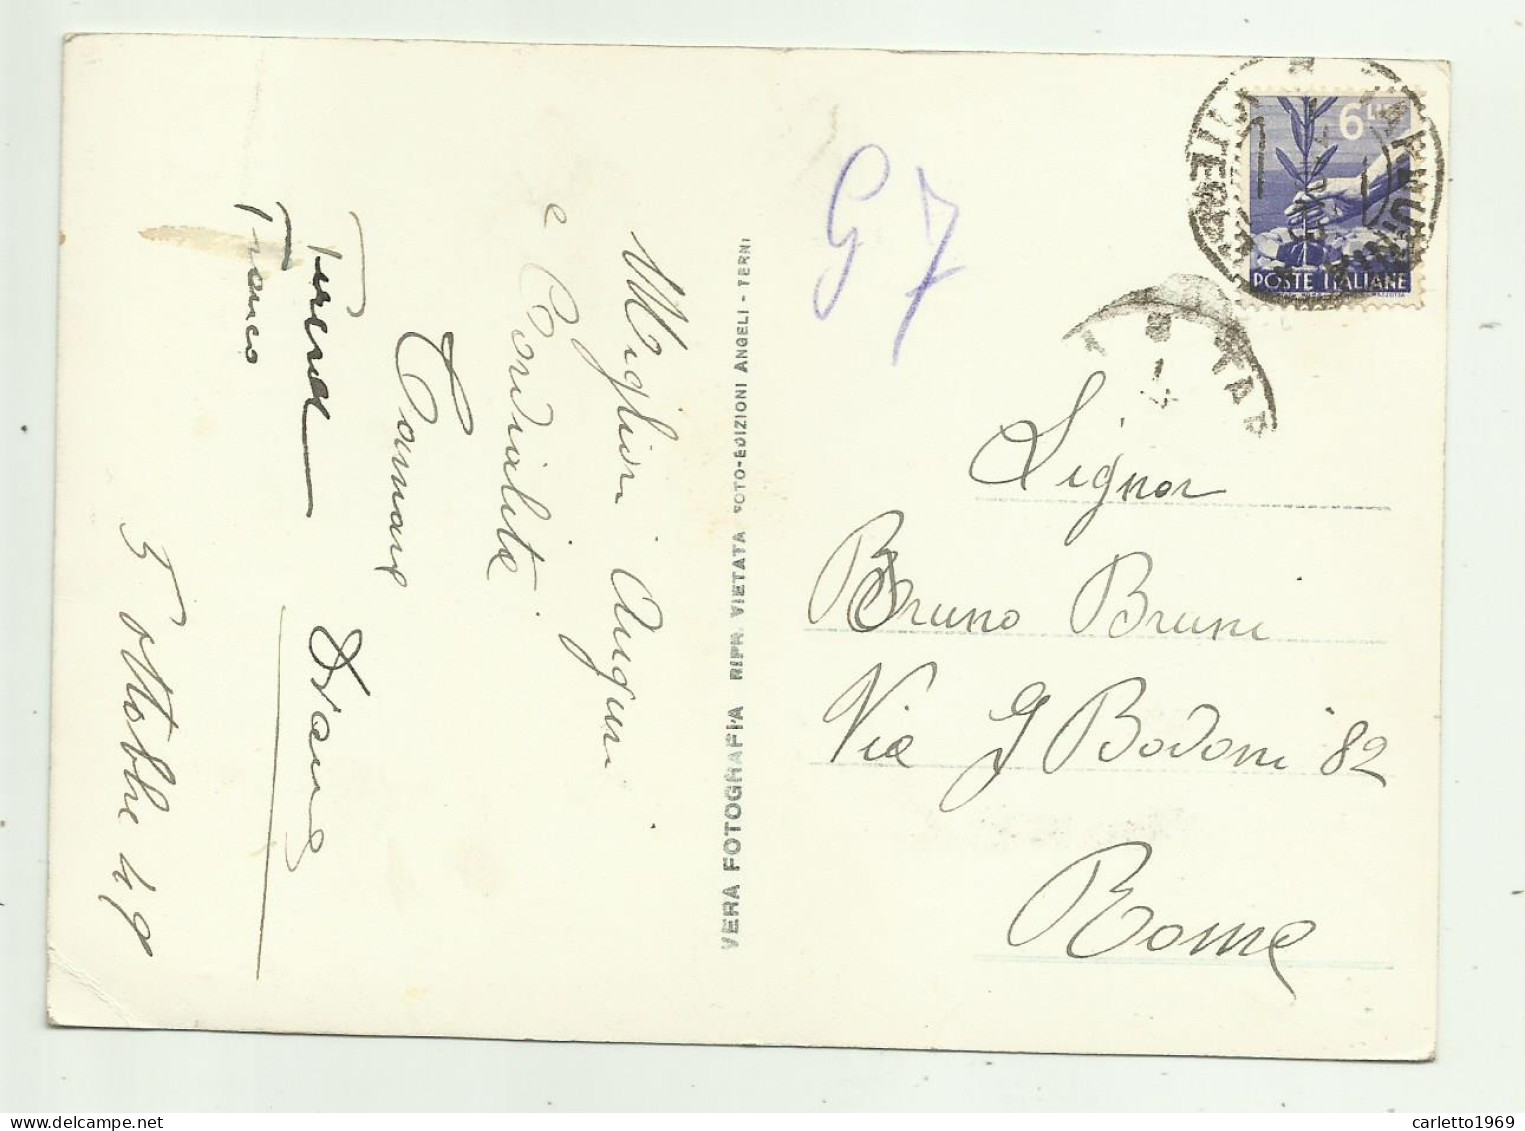 Migliori Auguri
e Cordialità
Franco
5 ottobre 49
VERA FOTOGRAFIA RIPR. VIETATA FOTO-EDIZIONI ANGELI - TERNI
G 7
6 LIRE
POSTE ITALIANE
Signor
Bruno Bruni
Via G Bodoni 82
Roma
carletto1969